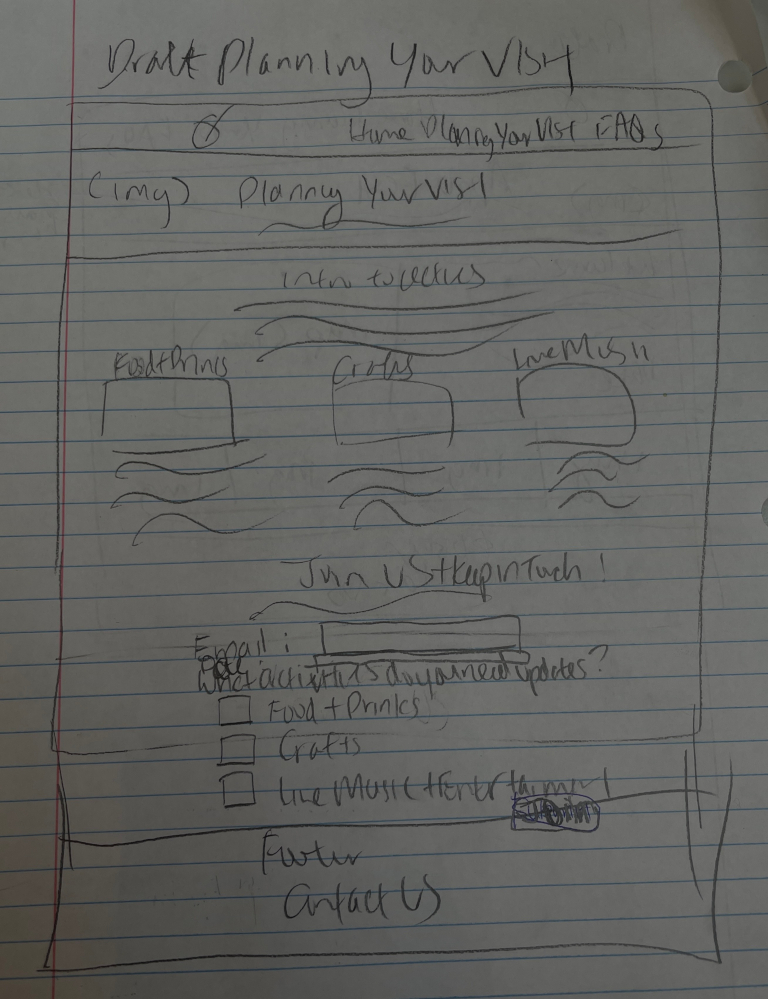 Draft Planning Your Visit
Home Planning Your Visit FAQs
(img) Planning Your Visit
Intro to
Food + Drinks Crafts Live Music
Join us + Keep in Touch!
Email:
What activities do you need updates?
Food + Drinks
Crafts
Live Music + Entertainment
Footer
Contact Us